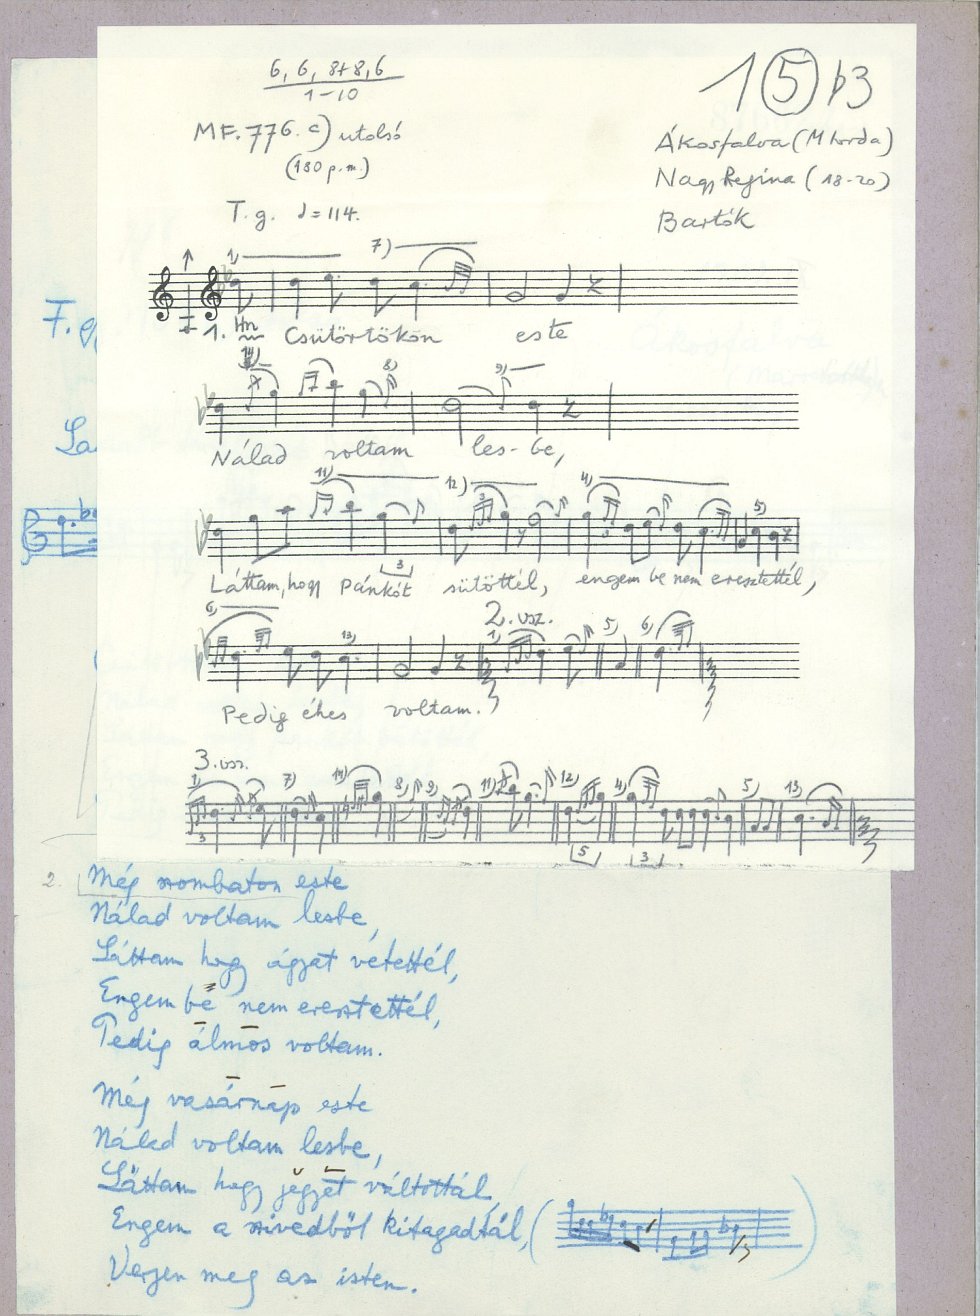 6, 6, 8+8, 6
1-10
1 5 b3
MF. 776. c) utolsó
(180 p.m.)
Ákosfalva (M torda)
Nagy Regina (18-20)
T. g. d = 114.
Bartók
1) 7)
1. Hm Csütörtökön este
8) 9)
Nálad voltam les-be,
11) 12) 3 4) 5)
3
Láttam, hogy pánkót sütöttél, engem be nem eresztettél,
2. vsz.
6) 13) 1) 5) 6)
Pedig éhes voltam.
3. vsz.
1) 7) 10) 8) 9) 11) 12) 4) 5) 13)
3 5 3
2. Még szombaton este
Nálad voltam lesbe,
Láttam hogy ágyat vetettél,
Engem be nem eresztettél,
Pedig álmos voltam.
Még vasárnap este
Nálad voltam lesbe,
Láttam hogy jegyet váltottál,
Engem a szivedből kitagadtál,
Verjen meg az isten.